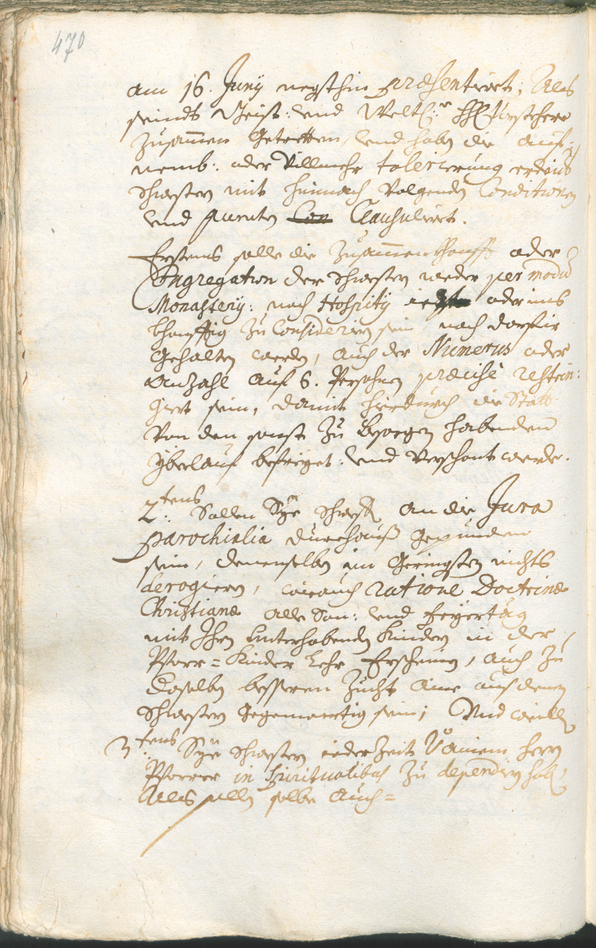 470
am 16. Junÿ negsthin præsentiert; Als
seindt Geist: und Weltl: HH Vorsteher
Zusammen Getretten, und haben die auf-
nemb: oder Villmehr tolerierung
Schwestern mit hinnach Volgenden Conditionen
und puncten Clausuliert.
Erstens solle die Zusammenkonfft oder
Congregation der Schwestern weder per modum
Monasterÿ: noch Hospitÿ oder ins
khonfftig Zu Consideriern sein, noch darfir
Gehalten werden, auch der Numerus oder
Anzahl auf 6. Persohnen præcisè restrin-
giert sein, damit hierdurch die Statt
Von den sonst Zu besorgen habenden
Yberlauf befreÿet: und Verschont werde.
2.tens Sollen Sÿe Schwest: an die Jura
parochialia durchauß gepunden
sein, demenselben im Geringsten nichts
derogiern, wie auch ratione Doctrinæ
Christianæ alle Son: und Feyertäg
mit Ihren Unterhabenden Kindern in der
Pfarr=Kinder Lehr Erscheinen, auch Zu
daselben besseren Zucht aine aus denen
Schwestern Gegenwertig sein; Und weillen
3.tens Sÿe Schwestern iederZeit Von ainem Herrn
Pfarrer in Spiritualibus Zu dependiern haben
Als sollen selbe auch=